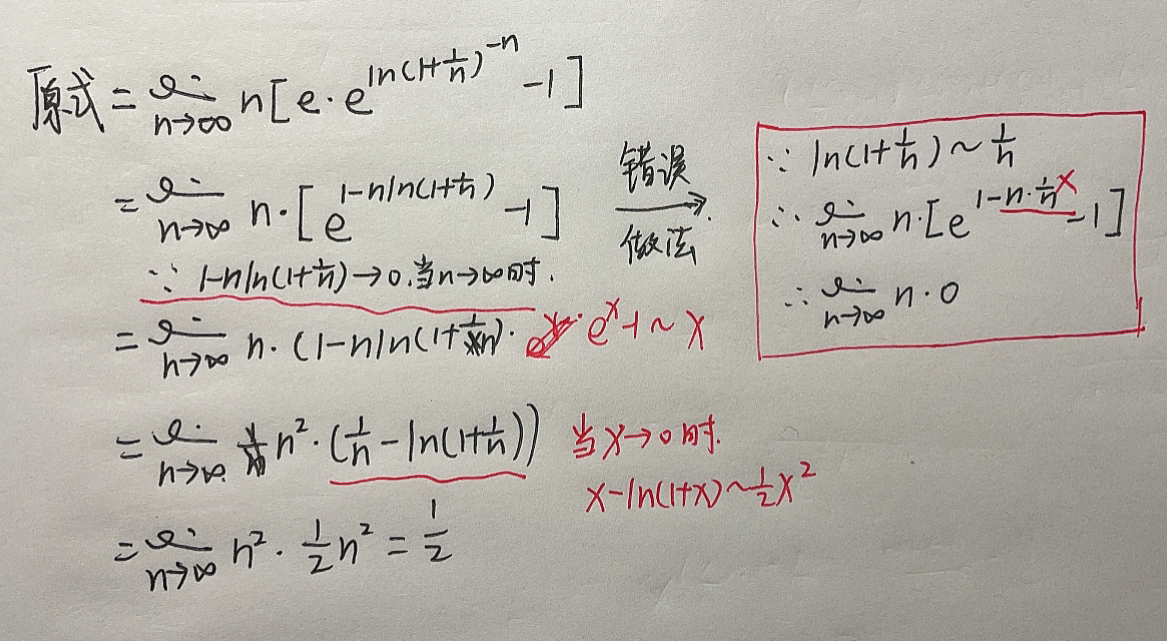 原式 = lim n→∞ n[e·e^{ln(1+1/n)^{-n}} -1]
= lim n→∞ n·[e^{1-nln(1+1/n)} -1]
∵ 1-nln(1+1/n)→0.当n→∞时.
= lim n→∞ n·(1-nln(1+1/n)· e^x-1~x
= lim n→∞ n²·(1/n - ln(1+1/n)) 当x→0时.
x-ln(1+x)~1/2x²
= lim n→∞ n²·1/2n² = 1/2
错误
做法
∵ ln(1+1/n)~1/n
∴ lim n→∞ n·[e^{1-n·1/n} -1] ×
∴ lim n→∞ n·0